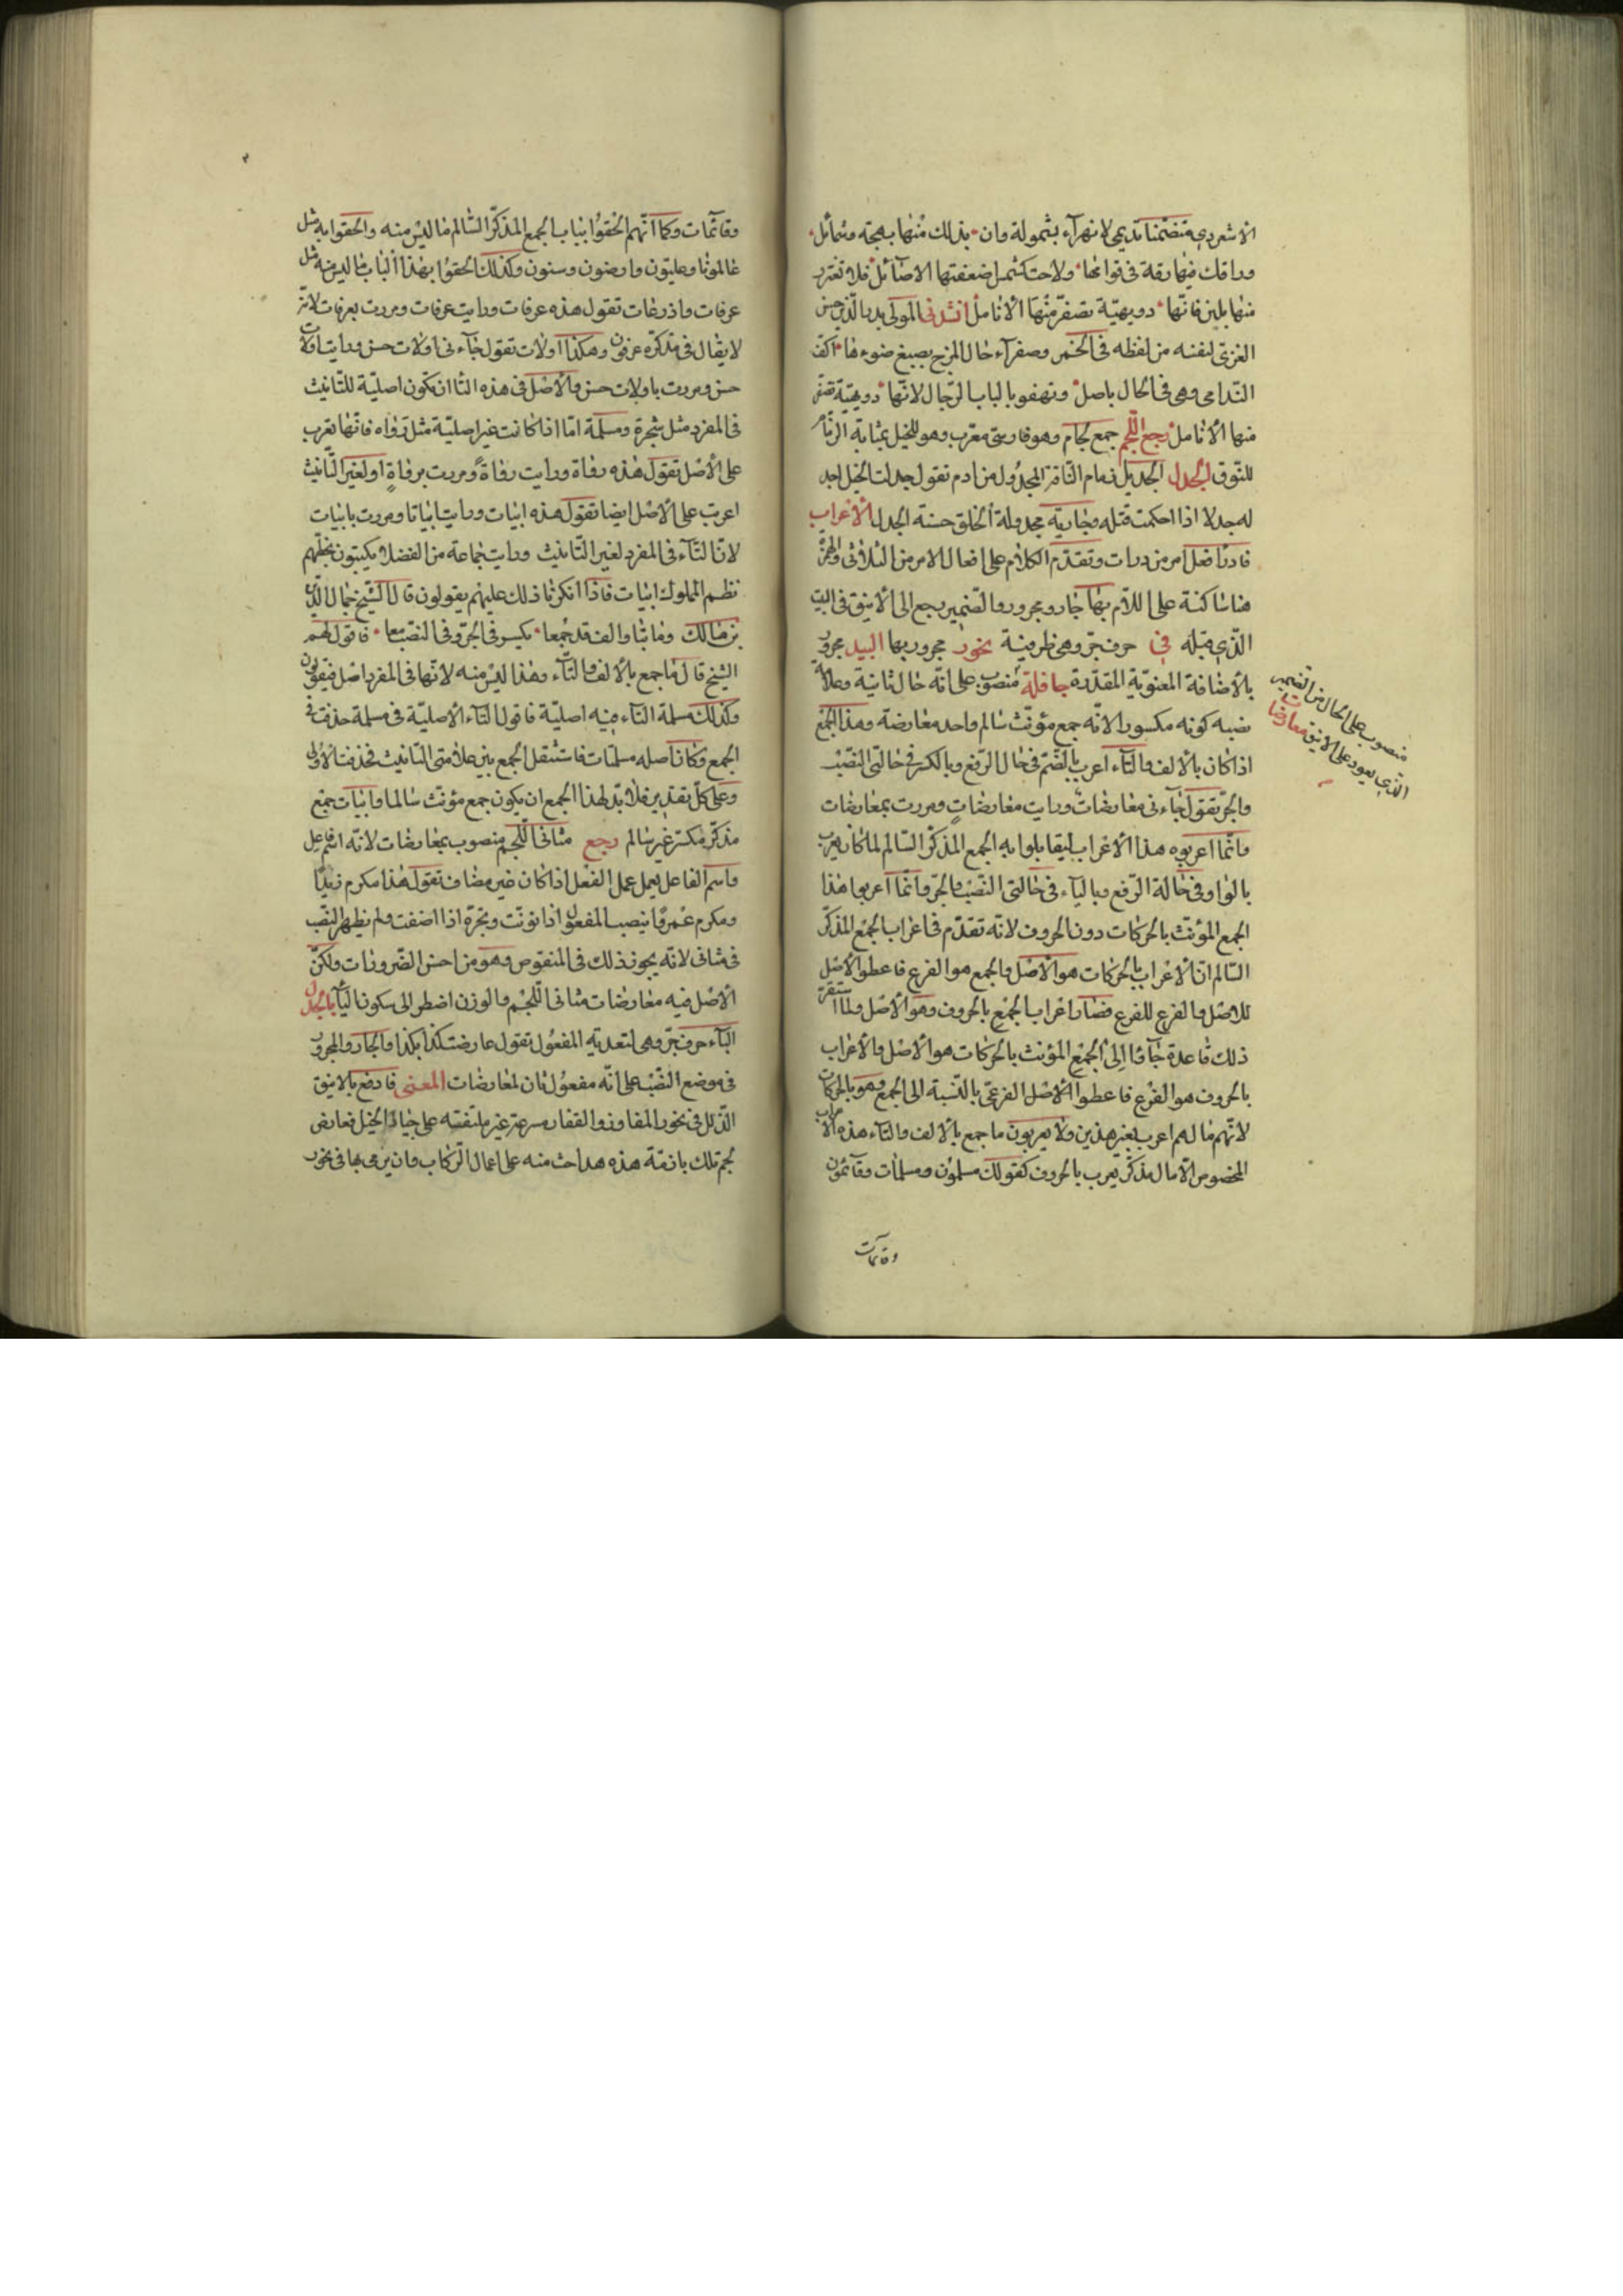 الاشعردي متضمنا تديمى لا تهرآء بشمولة وان بذلك منها بهجة وشمائل
وراقك منها رقة في قوامها ولاحت كشمس اضعفتها الاصائل فلا تغترر
منها بلين فانها دويهيّة تصفرّ منها الانامل انشدنى المولى بدر الدّين حسن
الغزىّ لنفسه من لفظه فى الخمر وصفرآء حال المزج يصبغ ضوءها اكفّ
النّدامى وهى فى الحال ناصل وتهفو بالباب الرّجال لانّها دويهيّة تصفرّ
منها الانامل رجع اللّجم جمع لجام وهو فارسىّ معرّب وهو للخيل بمثابة الزّمام
للنّوق الجدل الجديل زمام النّاقة المجدول من ادم تقول جدلت الحبل اجد
له جدلا اذا احكمت فتله وجارية مجدولة الخلق حسنة الجدل الاعراب
فادرأ فعل امر من درات وتقدّم الكلام على افعال الامر من الثلاثى والهمزة
هنا ساكنة على اللام بها جار ومجرور والضّمير يرجع الى الاينق فى البيت
الّذى قبله فى حرف جرّ وهى ظرفية نحور مجرور بها البيد مجرور
بالاضافة المعنويّة المقدّرة جافلة منصوب على انّه حال ثانية وعلامة
نصبه كونه مكسورا لانّه جمع مؤنّث سالم واحده معارضة وهذا الجمع
اذا كان بالالف والتّاء اعرب بالضّم فى حال الرّفع وبالكسر فى حالتى النّصب
والجرّ تقول جآءنى معارضات ورايت معارضات ومررت بمعارضات
وانّما اعربوه هذا الاعراب ليقابلوا به الجمع المذكّر السّالم لما كان يعرب
بالواو فى حالة الرّفع وبالياء فى حالتى النّصب والجرّ وانّما اعربوا هذا
الجمع المؤنّث بالحركات دون الحروف لانّه تقدّم فى اعراب الجمع المذكّر
السّالم انّ الاعراب بالحركات هو الاصل والجمع هو الفرع فاعطوا الاصل
للاصل والفرع للفرع فصار اعراب الجمع بالحروف وهو الاصل ولما استقرّت
ذلك قاعدة جاؤا الى الجمع المؤنث بالحركات هو الاصل والاعراب
بالحروف هو الفرع فاعطوا الاصل الفرعىّ بالنّسبة الى الجمع وهو بالحركات
لانّهم ما لهم اعرب بغير هذين ولا يعربون ما جمع بالالف والتاء هذه الاعراب
المخصوص الّا ما له مذكّر يعرب بالحروف كقولك مسلمون ومسلمات وقائمون
وقائمات
منصوب على الحال من الضمير
الّذى يعود على الاينق معارضات
وقائمات وكما انّهم الحقوا بباب الجمع المذكّر السّالم ما ليس منه والحقوا به مثل
عالمونا وعليّون وارضون وسنون وكذلك الحقوا بهذا الباب ما ليس منه مثل
عرفات واذرعات تقول هذه عرفات ورايت عرفات ومررت بعرفات لانّه
لا يقال فى مذكّره عرفون وهكذا اولات تقول جآءنى اولات حسن ورايت اولات
حسن ومررت باولات حسن والاصل فى هذه التا ان تكون اصليّة للتّانيث
فى المفرد مثل شجرة ومسلمة امّا اذا كانت غير اصليّة مثل رواه فانّها تعرب
على الاصل تقول هذه رفاة ورايت رفاةً ومررت برفاةٍ او لغير التّانيث
اعرب على الاصل ايضا تقول هذه ابيات ورايت ابياتا ومررت بابيات
لانّ التّاء فى المفرد لغير التّانيث ورايت جماعة من الفضلا يكتبون بخطّهم
نظم المملوك ابيات فاذا انكرنا ذلك عليهم يقولون قال الشّيخ جمال الدّين
بن مالك وما بتا والف قد جمعا يكسر فى الجرّ وفى النصب معا فاقول لهم
الشيخ قال ما جمع بالالف والتّاء وهذا ليس منه لانّها فى المفرد اصل فيقولون
وكذلك مسلمة التاء فيه اصليّة فاقول التاء الاصليّة فى مسلمة حذفت فى
الجمع وكان اصله مسلمتات فاستثقل الجمع بين علامتى التانيث فحذفت الاولى
وعلى كلّ تقدير فلا بدّ لهذا الجمع ان يكون جمع مؤنّث سالما وابيات جمع
مذكّر مكسّر غير سالم رجع مثانى اللّجم منصوب بمعارضات لانّه اسم فاعل
واسم الفاعل يعمل عمل الفعل اذا كان غير مضاف تقول هذا مكرم زيدًا
ومكرم عمرو انصب المفعول اذا نوّنت وتجرّه اذا اضفت ولم يظهر النّصب
فى مثانى لانّه يجوز ذلك فى المنقوص وهو من احسن الضّرورات ولكنّ
الاصل فيه معارضات مثانى اللّجم والوزن اضطر الى سكون اليآء بالجدل
البآء حرف جرّ وهى لتعدية المفعول تقول عارضت كذا بكذا والجار والمجرور
فى موضع النّصب على انّه مفعول ثان لمعارضات المعنى فادفع بالاينق
الذّلل فى نحور المفاوز والقفار مسرعة غير ملتفتة على جياد الخيل تعارض
لجم تلك بازمّة هذه هذا حثّ منه على اعمال الرّكاب وان يرمى بها فى نحور